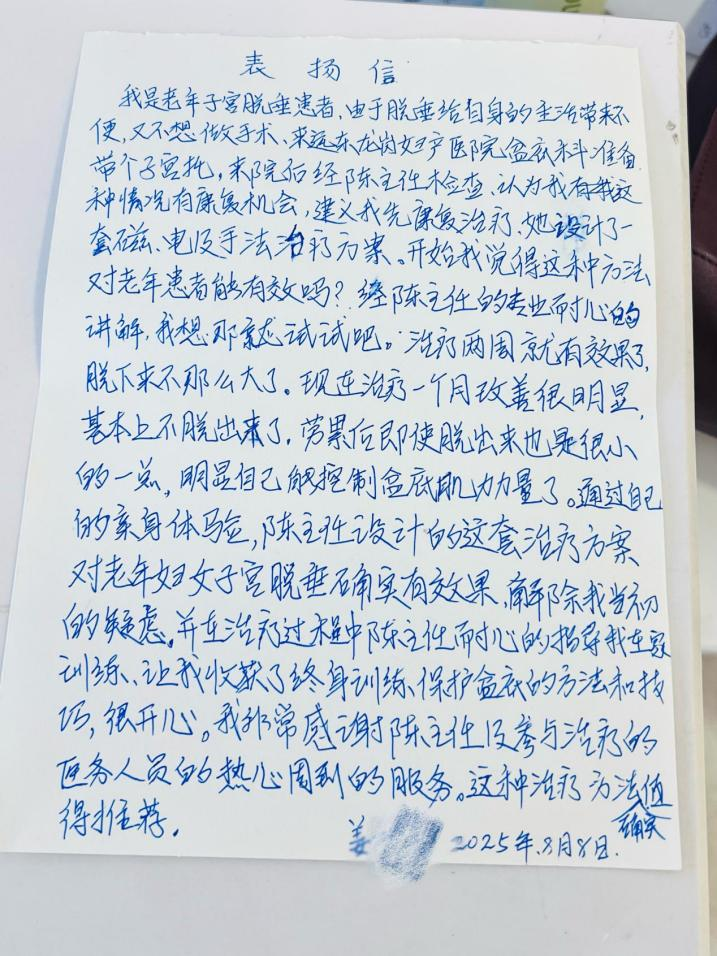 表扬信
我是老年子宫脱垂患者,由于脱垂给自身的生活带来不
便,又不想做手术、来远东龙岗妇产医院盆底科准备
带个子宫托,来院后经陈主任检查、认为我有我这
种情况有康复机会,建义我先康复治疗、她设计了一
套磁、电及手法治疗方案。开始我觉得这种方法
对老年患者能有效吗?经陈主任的专业而耐心的
讲解,我想那就试试吧。治疗两周就有效果了,
脱下来不那么大了。现在治疗一个月改善很明显,
基本上不脱出来了,劳累后即使脱出来也是很小
的一点,明显自己能控制盆底肌力力量了。通过自己
的亲身体验,陈主任设计的这套治疗方案
对老年妇女子宫脱垂确实有效果、解除我当初
的疑虑。并在治疗过程中陈主任耐心的指导我在家
训练、让我收获了终身训练、保护盆底的方法和技
巧,很开心。我非常感谢陈主任及参与治疗的
医务人员的热心周到的服务。这种治疗方法值
得推荐。
确实
姜 2025年.8月8日.